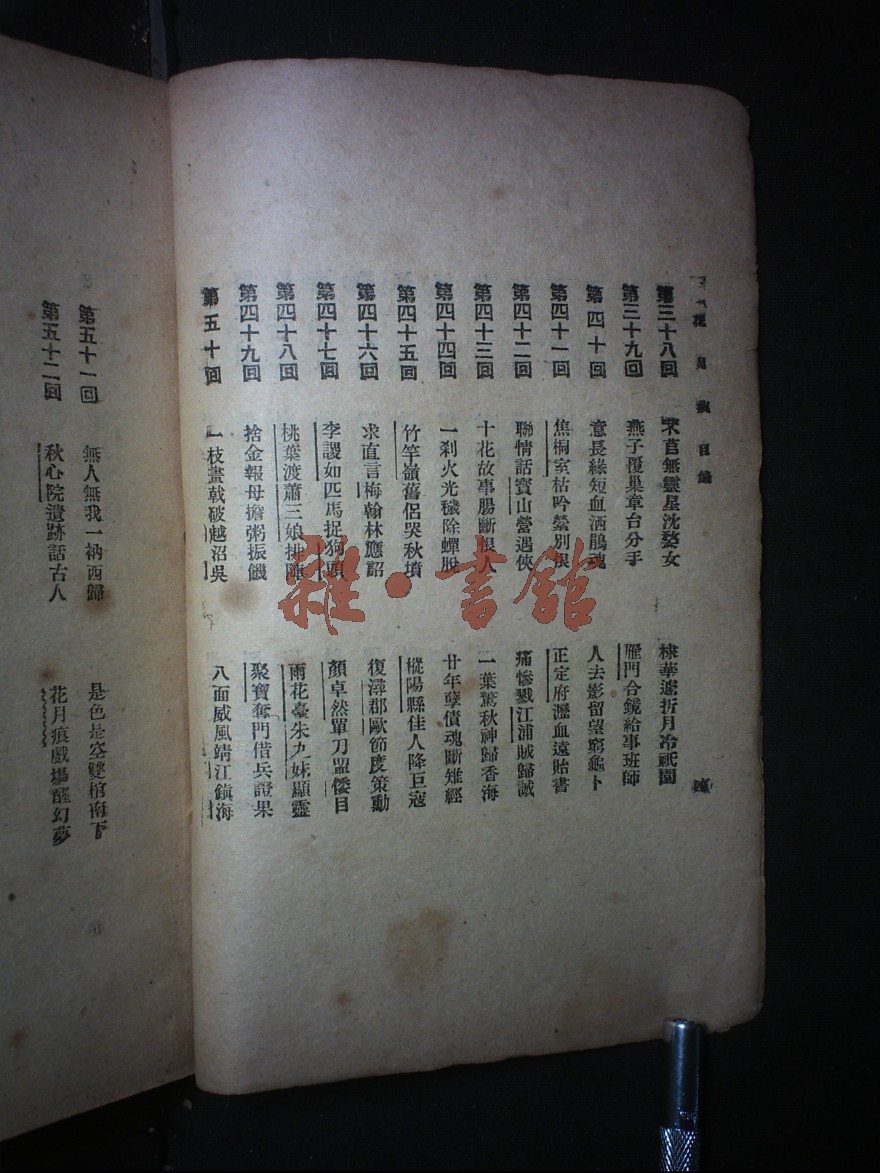 花月痕目錄
第三十八回　芣苢無靈星沈婺女　棣華遽折月冷祇園
第三十九回　燕子覆巢章台分手　雁門合鏡給事班師
第四十回　意長緣短血洒鵑魂　人去影留望窮龜卜
第四十一回　焦桐室枯吟縈別恨　正定府瀝血遠貽書
第四十二回　聯情話寶山營遇俠　痛慘戮江浦賊歸誠
第四十三回　十花故事腸斷恨人　一葉驚秋神歸香海
第四十四回　一剎火光穢除蟬脫　廿年孽債魂斷雉經
第四十五回　竹竿嶺舊侶哭秋墳　樅陽縣佳人降巨寇
第四十六回　求直言梅翰林應詔　復潯郡歐節度策勳
第四十七回　李謖如匹馬捉狗頭　顏卓然單刀盟倭目
第四十八回　桃葉渡蕭三娘排陣　雨花臺朱九妹顯靈
第四十九回　捨金報母擔粥振饑　聚寶奪門借兵證果
第五十回　一枝畫戟破越沼吳　八面威風靖江鎮海
第五十一回　無人無我一衲西歸　是色是空雙棺南下
第五十二回　秋心院遺跡話古人　花月痕戲場醒幻夢
雜·書館